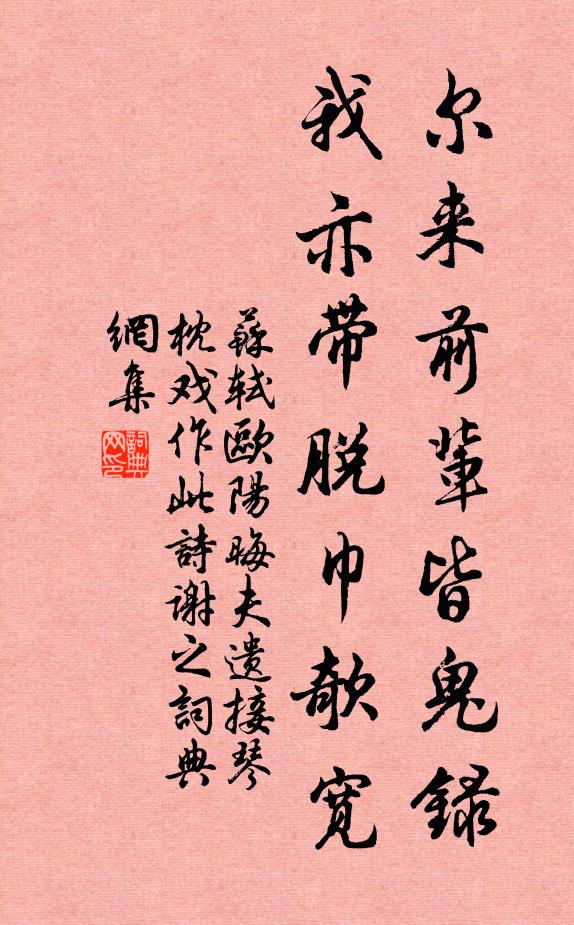 尔来前輩皆鬼錄
我亦帶脱巾欹寬
蘇軾歐陽晦夫遺接琴
枕戏作此詩謝之詞典
網集
詞典网印